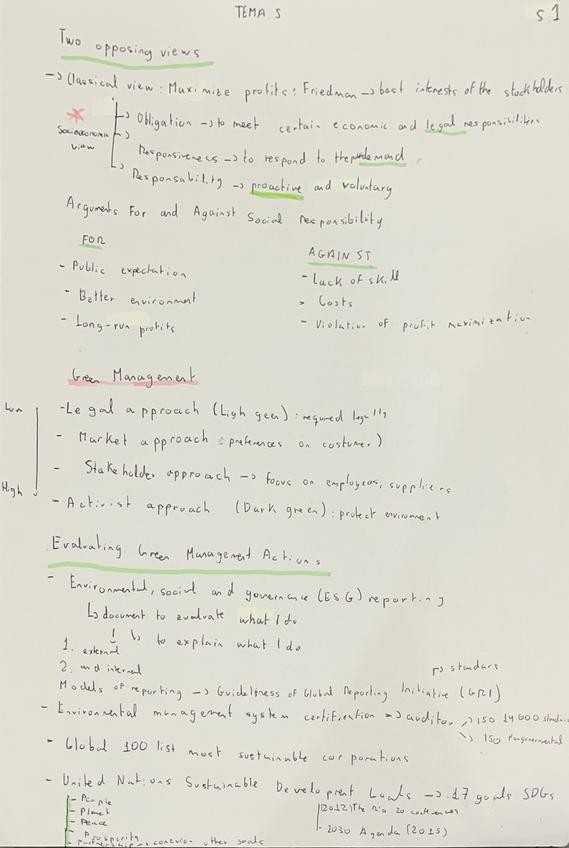 TEMA 5
S1
Two opposing views
-> Classical view: Maximize profits: Friedman -> best interests of the stockholders
* Socioeconomic view
Obligation -> to meet certain economic and legal responsibilities
Responsiveness -> to respond to the demand
Responsability -> proactive and voluntary
Arguments For and Against Social Responsibility
FOR
AGAINST
- Public expectation
- Lack of skill
- Better environment
- Costs
- Long-run profits
- Violation of profit maximization
Green Management
Low
- Legal approach (Ligh geen): required legally
- Market approach : preferences on costumer)
- Stakeholder approach -> focus on employees, suppliers
High
- Activist approach (Dark green): protect enviroment
Evaluating Green Management Actions
- Environmental, social and governance (ESG) reporting
↳ document to evaluate what I do
↳ to explain what I do
1. external
2. and internal
↱ standars
Models of reporting -> Guideliness of Global Reporting Initiative (GRI)
- Environmental management system certification => auditor -> ISO 14000 standard
↘ ISO
- Global 100 list most sustainable corporations
- United Nations Sustainable Development Goals -> 17 goals SDGs
- People
- Planet
- Peace
- Prosperity
- Partnership -> conexion other goals
(2012) The Rio 20 conferences
- 2030 Agenda (2015)